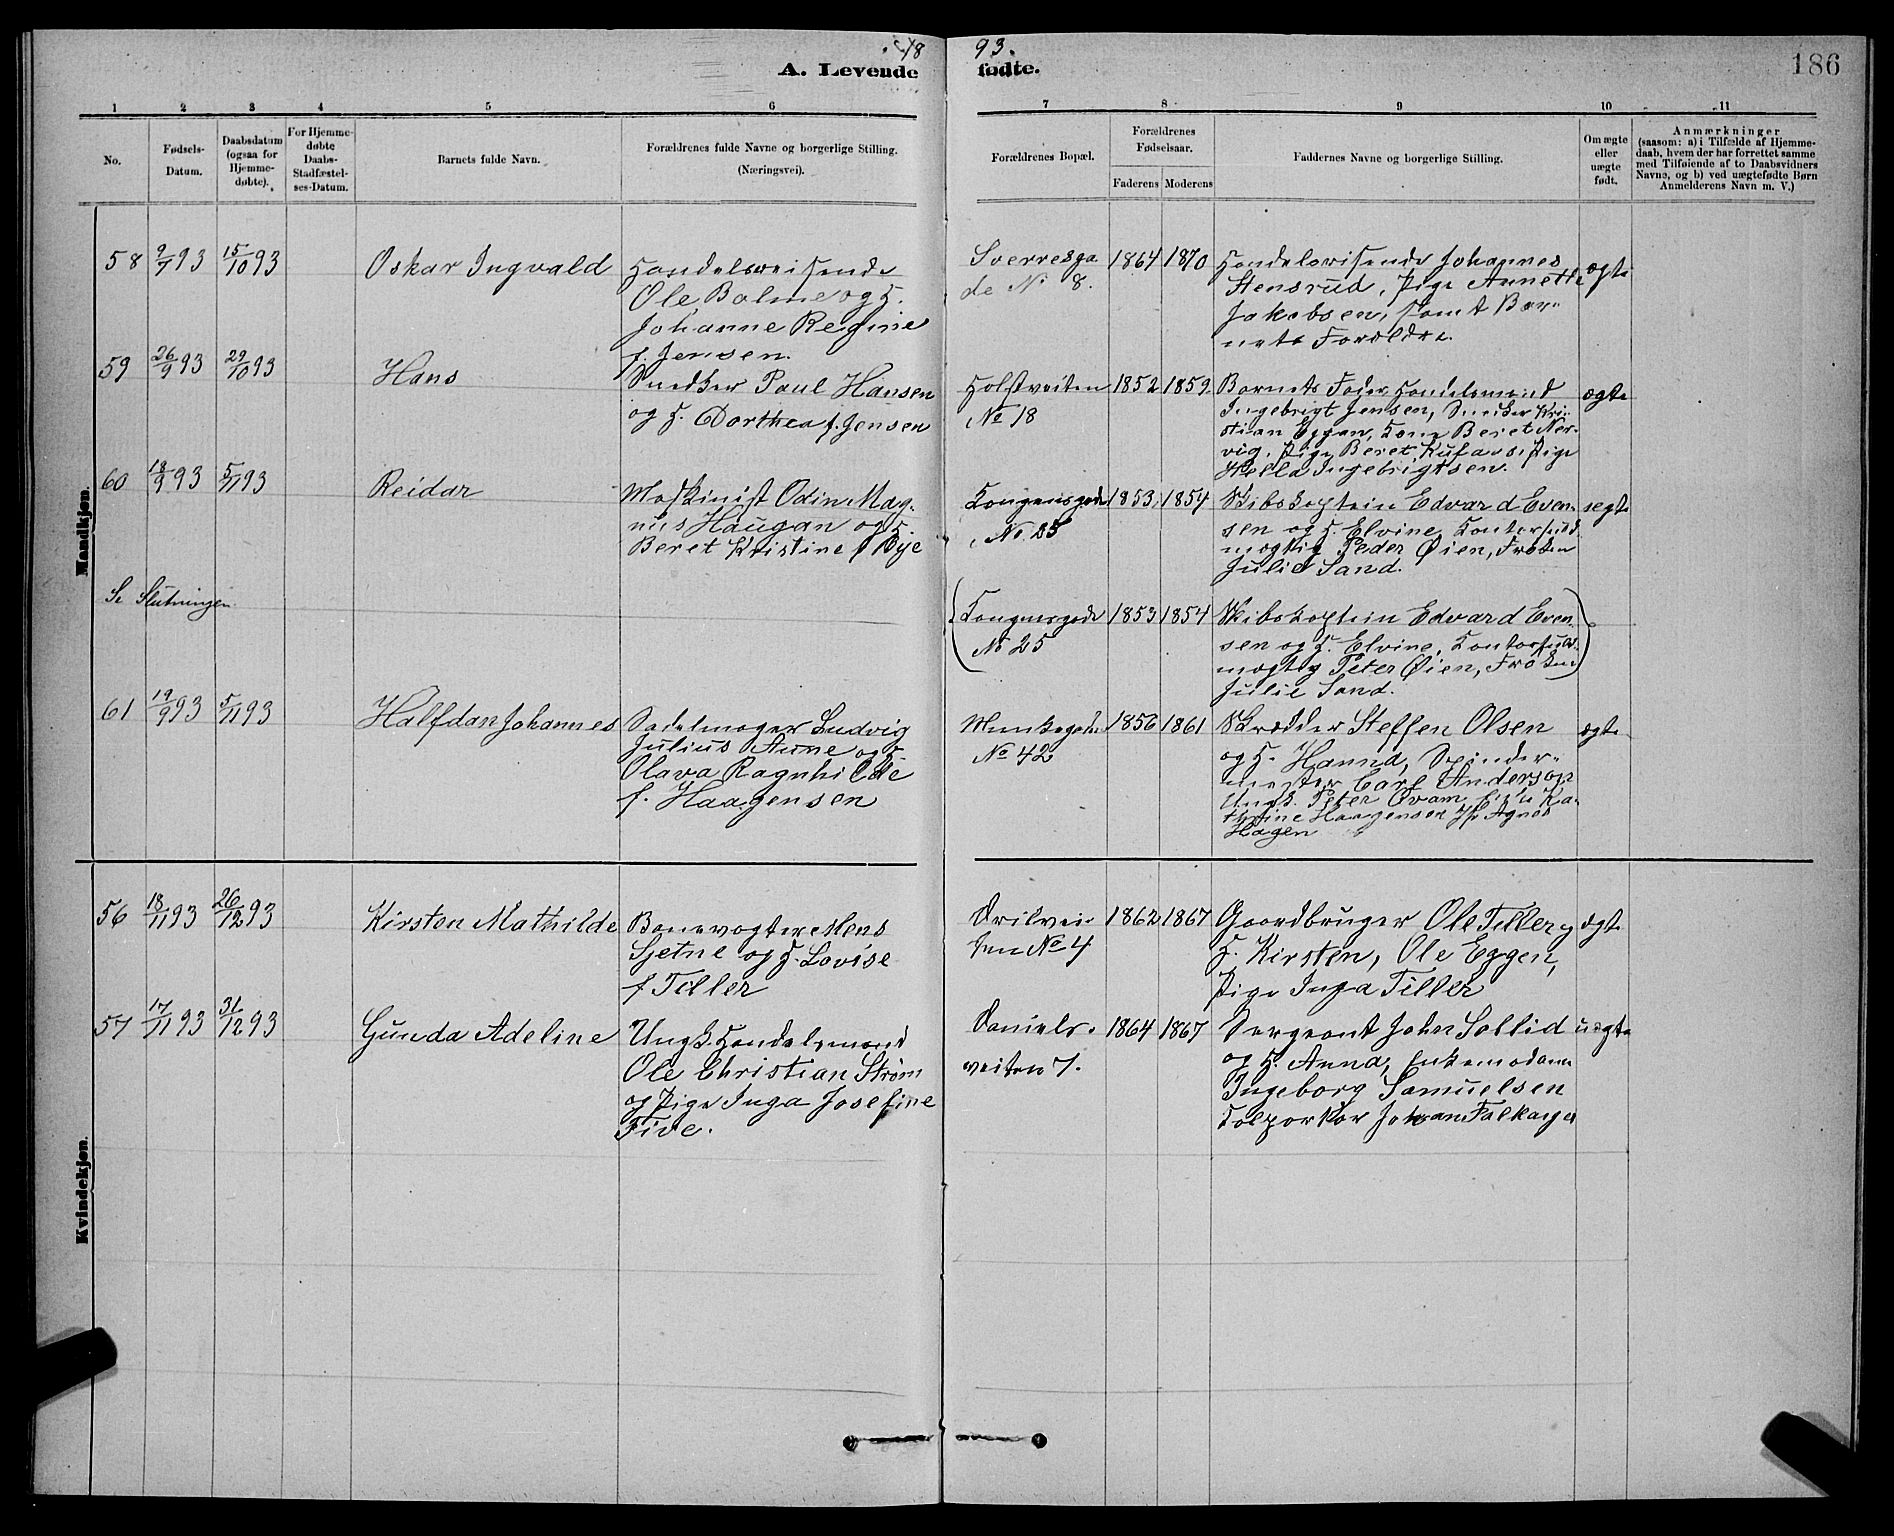 18
93.
A. Levende
fødte.
186
1 2 3 4 5 6
7 8 9 10 11
No.
Fødsels-
Datum.
Daabsdatum
(ogsaa for
Hjemme-
døbte).
For Hjemme-
døbte
Daabs-
Stadfæstel-
ses-Datum.
Barnets fulde Navn.
Forældrenes fulde Navne og borgerlige Stilling.
(Næringsvei).
Forældrenes Bopæl.
Forældrenes
Fødselsaar.
Faderens Moderens
Faddernes Navne og borgerlige Stilling.
Om ægte
eller
uægte
født.
Anmærkninger
(saasom: a) i Tilfælde af Hjemme-
daab, hvem der har forrettet samme
med Tilføiende af to Daabsvidners
Navne, og b) ved uægtefødte Børn
Anmelderens Navn m. V.)
Mandkjøn.
58 9/7 93 15/10 93 Oskar Ingvald
Handelsreisende
Ole Bolme og H.
Johanne Regine
f. Jensen.
Sverresga
de No 8.
1864 1870
Handelsreisende Johannes
Stensrud, Pige Annette
Jakobsen, samt Bar-
nets Forældre.
ægte
59 26/9 93 29/10 93 Hans
Snedker Paul Hansen
og H. Dorthea f. Jensen
Holstveiten
No 18
1852 1859
Barnets Fader, Handelsmand
Ingebrigt Jensen, Snedker Kri-
stian Eggan, Kone Beret Ner-
vig, Pige Beret Pige
Ingebrigtsen.
ægte
60 18/9 93 5/11 93 Reidar
Maskinist Odin Mag-
nus Haugan og H.
Beret Kristine f. Bye
Kongensgade
No. 25
1853 1854
Skibskaptein Edvard Even-
sen og H. Elvine, Kontorfuld-
mægtig Peder Øien, Frøken
Julie Sand.
ægte
Se Slutningen.
(Kongensgade
No 25
1853 1854
Skibskaptein Edvard Even-
sen og H. Elvine, Kontorfuld-
mægtig Peter Øien, Frøken)
Julie Sand.
61 19/9 93 5/11 93 Halfdan Johannes
Sadelmager Ludvig
Julius Aune og H.
Olava Ragnhilde
f. Haagensen
Munkegaden
No 42
1856 1861
Skrædder Steffen Olsen
og H. Hanna, Spinder-
mester Carl Anderson
Ungk. Peter Kvam, Ka-
thrine Haagensen Agnes
Hagen
ægte
Kvindekjøn.
56 18/11 93 26/12 93 Kirsten Mathilde
Banevogter Mons
Sjetne og H. Lovise
f. Tiller
Prilvei-
ten No 4
1862 1867
Gaardbruger Ole Tiller og
H. Kirsten, Ole Eggen,
Pige Inga Tiller
ægte
57 17/11 93 31/12 93 Gunda Adeline
Ungk. Handelsmand
Ole Christian Strøm
og Pige Inga Josefine
Five.
Daniels-
veiten 7.
1864 1867
Sergeant John Sollid
og H. Anna, Enkemadam
Ingeborg Samuelsen
Johan Falkanger
uægte